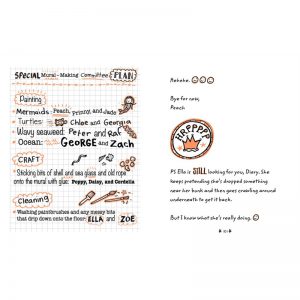 SPECIAL Mural - Making Committee PLAN
Painting
Mermaids: Peach, Prinny, and Jude
Turtles: Chloe and Georgia
Wavy seaweed: Peter and Raf
Ocean: GEORGE and Zach
CRAFT
*Sticking bits of shell and sea glass and old rope
onto the mural with glue: Poppy, Daisy, and Cordelia
Cleaning
*Washing paintbrushes and any messy bits
that drip down onto the floor: ELLA and ZOE
Hehehe.
Bye for now,
Peach
HRFPPPP
PS Ella is STILL looking for you, Diary. She
keeps pretending she's dropped something
near her book and then goes crawling around
underneath to get it back.
But I know what she's really doing.